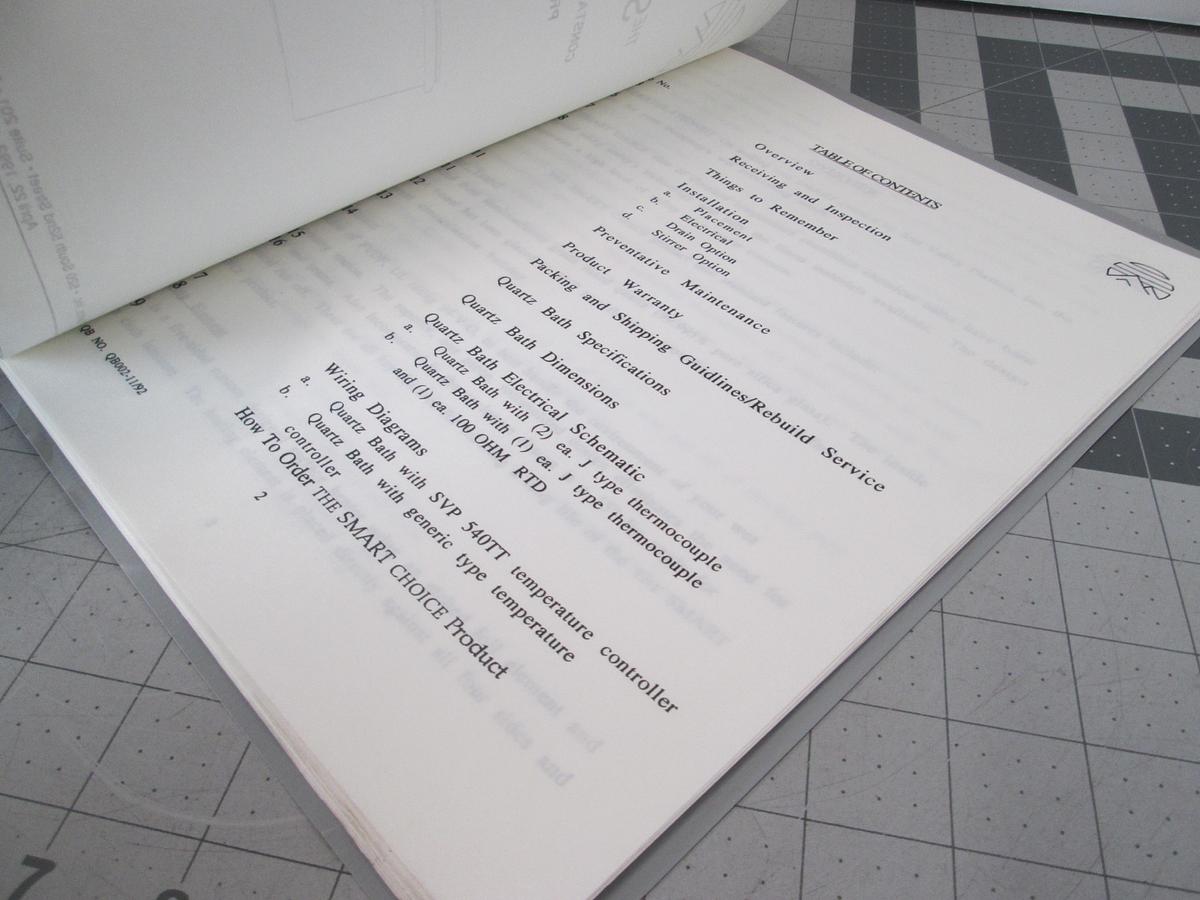 No.
TABLE OF CONTENTS
Overview
Receiving and Inspection
Things to Remember
Installation
a. Placement
b. Electrical
c. Drain Option
d. Stirrer Option
Preventative Maintenance
Product Warranty
Packing and Shipping Guidlines/Rebuild Service
Quartz Bath Specifications
Quartz Bath Dimensions
Quartz Bath Electrical Schematic
a. Quartz Bath with (2) ea. J type thermocouple
b. Quartz Bath with (1) ea. J type thermocouple
and (1) ea. 100 OHM RTD
Wiring Diagrams
a. Quartz Bath with SVP 540TT temperature controller
b. Quartz Bath with generic type temperature
controller
How To Order THE SMART CHOICE Product
8
11
12
13
14
15
16
7
8
9
2
QB NO. QB002-11/92
7